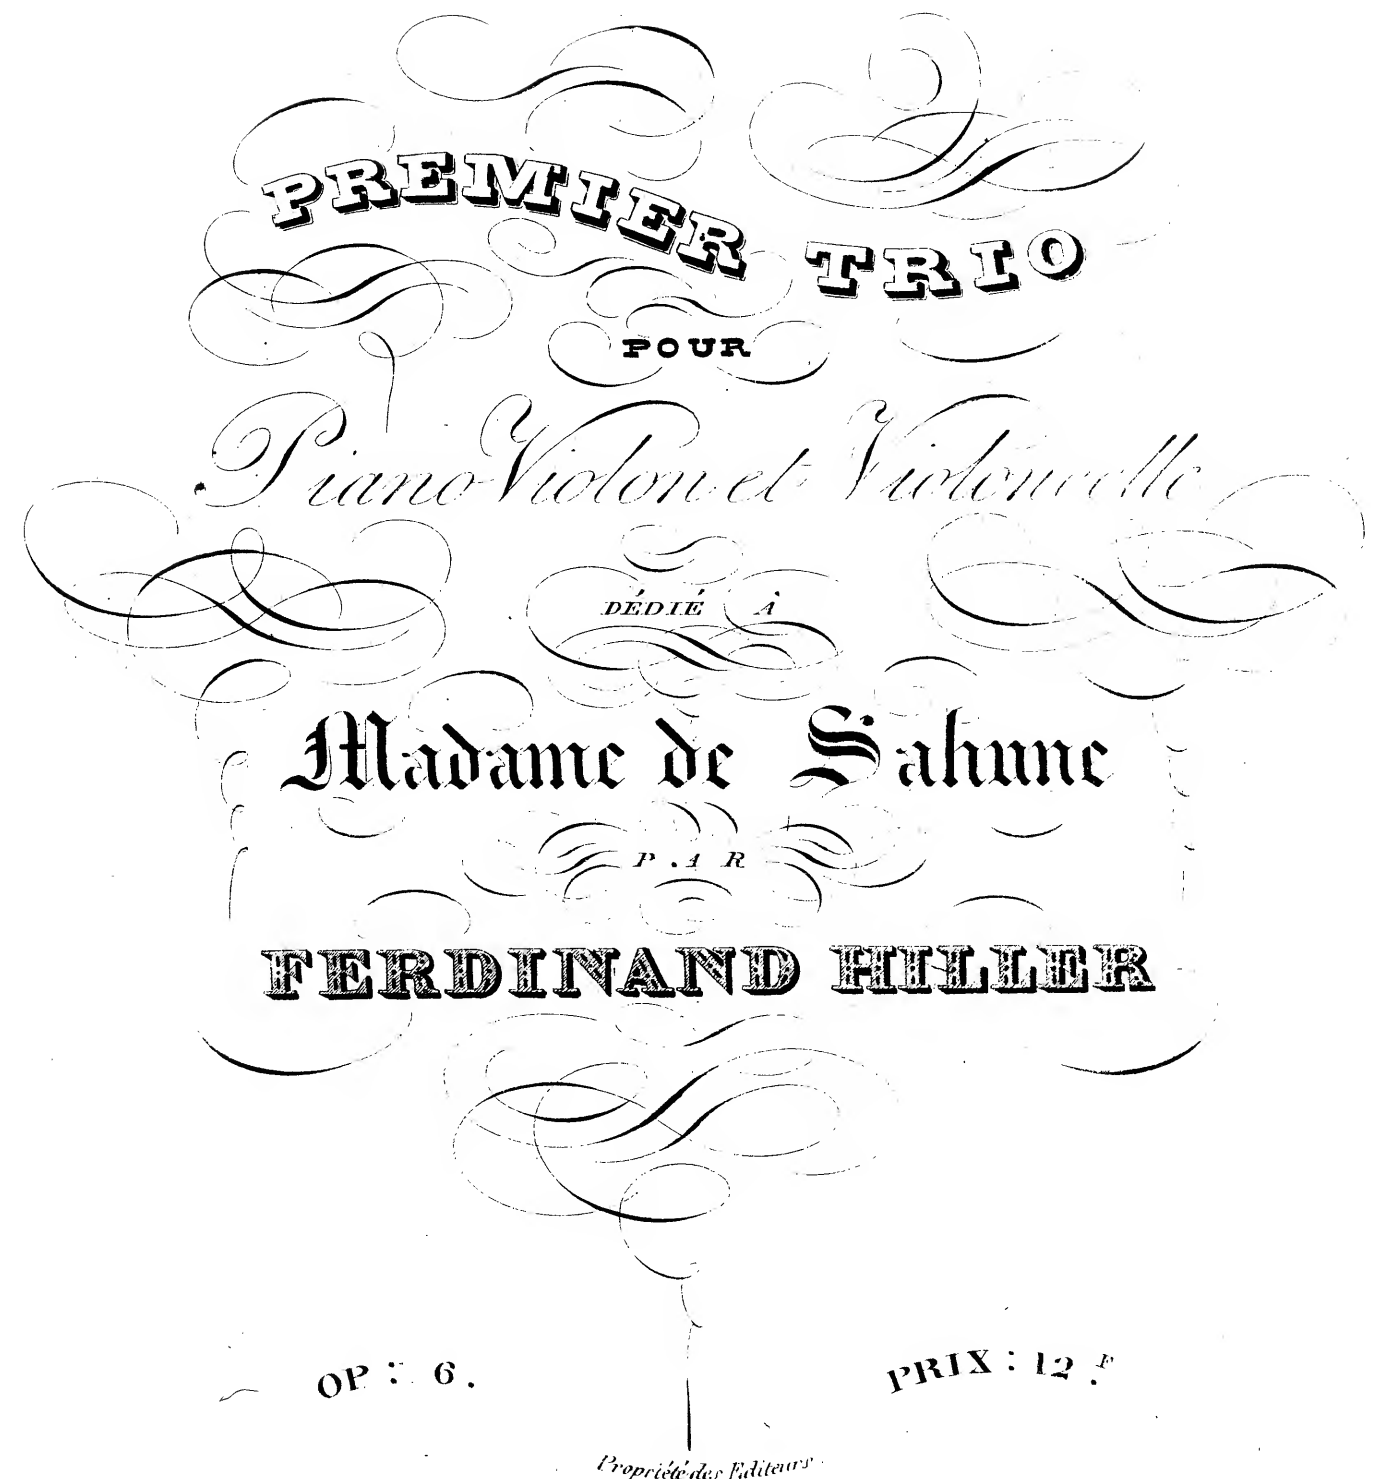 PREMIER TRIO
POUR
Piano Violon et Violoncelle
DÉDIÉ À
Madame de Sahune
PAR
FERDINAND HILLER
OP: 6.
PRIX: 12 F.
Propriété des Editeurs.